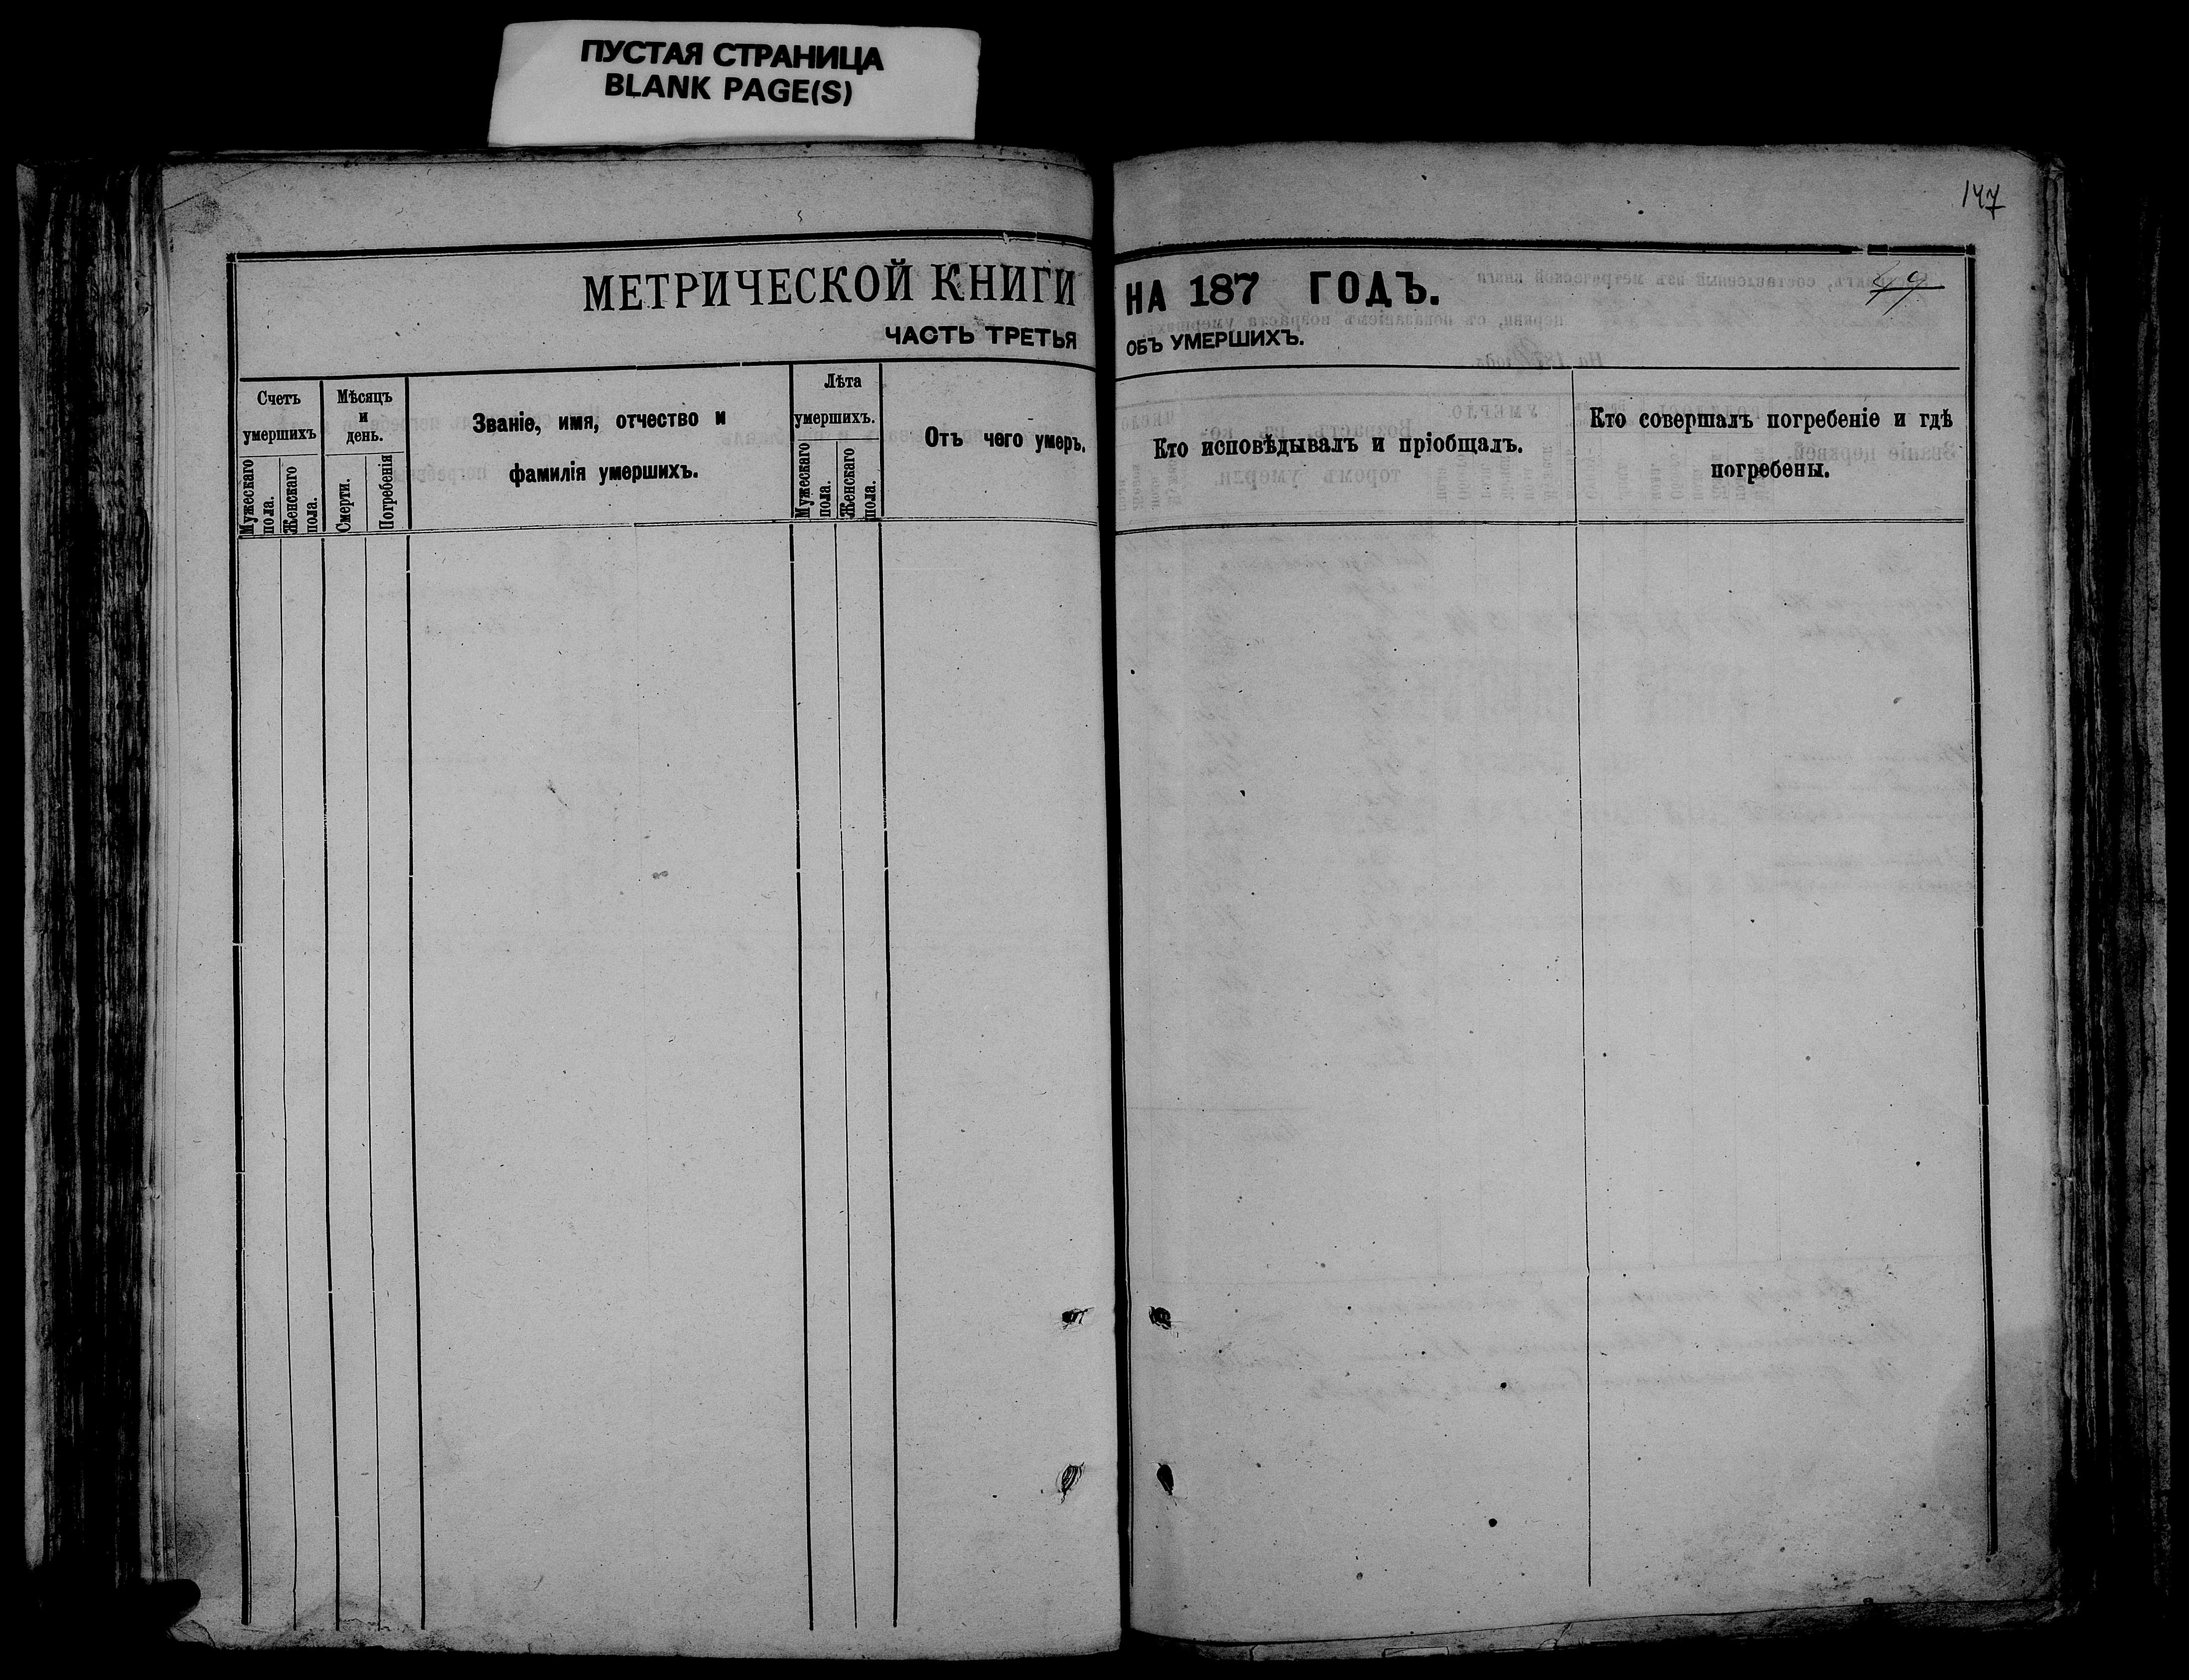 ПУСТАЯ СТРАНИЦА
BLANK PAGE(S)
147
МЕТРИЧЕСКОЙ КНИГИ НА 187 ГОДЪ.
ЧАСТЬ ТРЕТЬЯ ОБЪ УМЕРШИХЪ.
Счетъ умершихъ
Мужескаго пола.
Женскаго пола.
Мѣсяцъ и день.
Смерти.
Погребенія
Званіе, имя, отчество и
фамилія умершихъ.
Лѣта умершихъ.
Мужескаго пола.
Женскаго пола.
Отъ чего умеръ.
Кто исповѣдывалъ и пріобщалъ.
Кто совершалъ погребеніе и гдѣ
погребены.